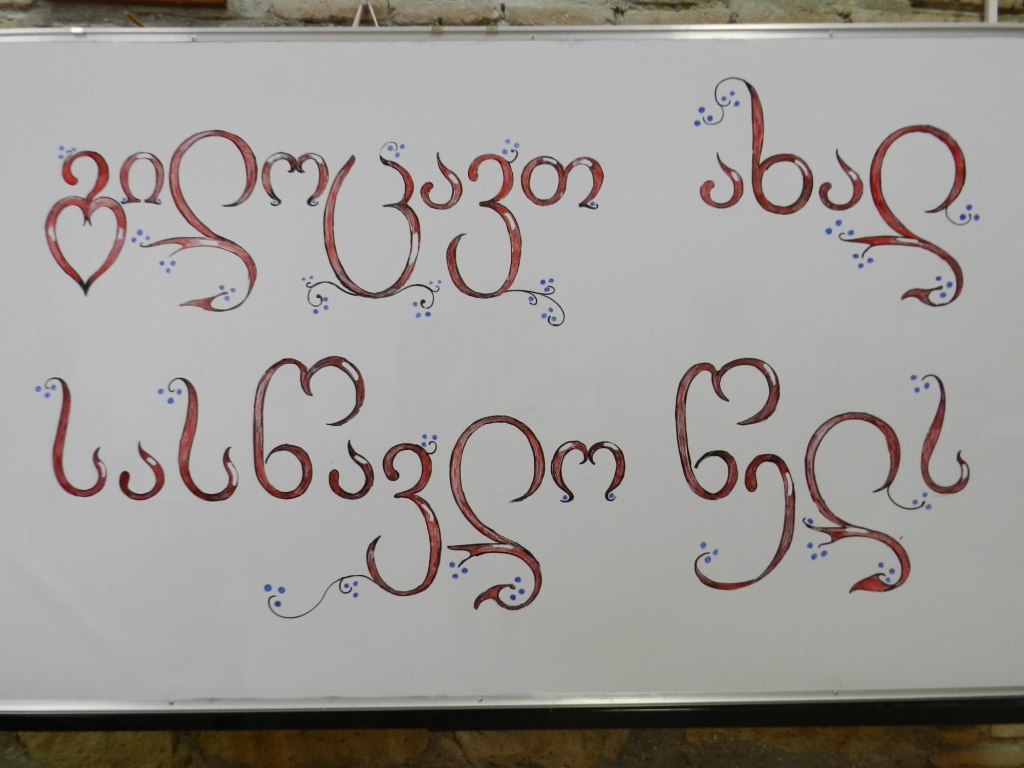 გილოცავთ ახალ
სასწავლო წელს